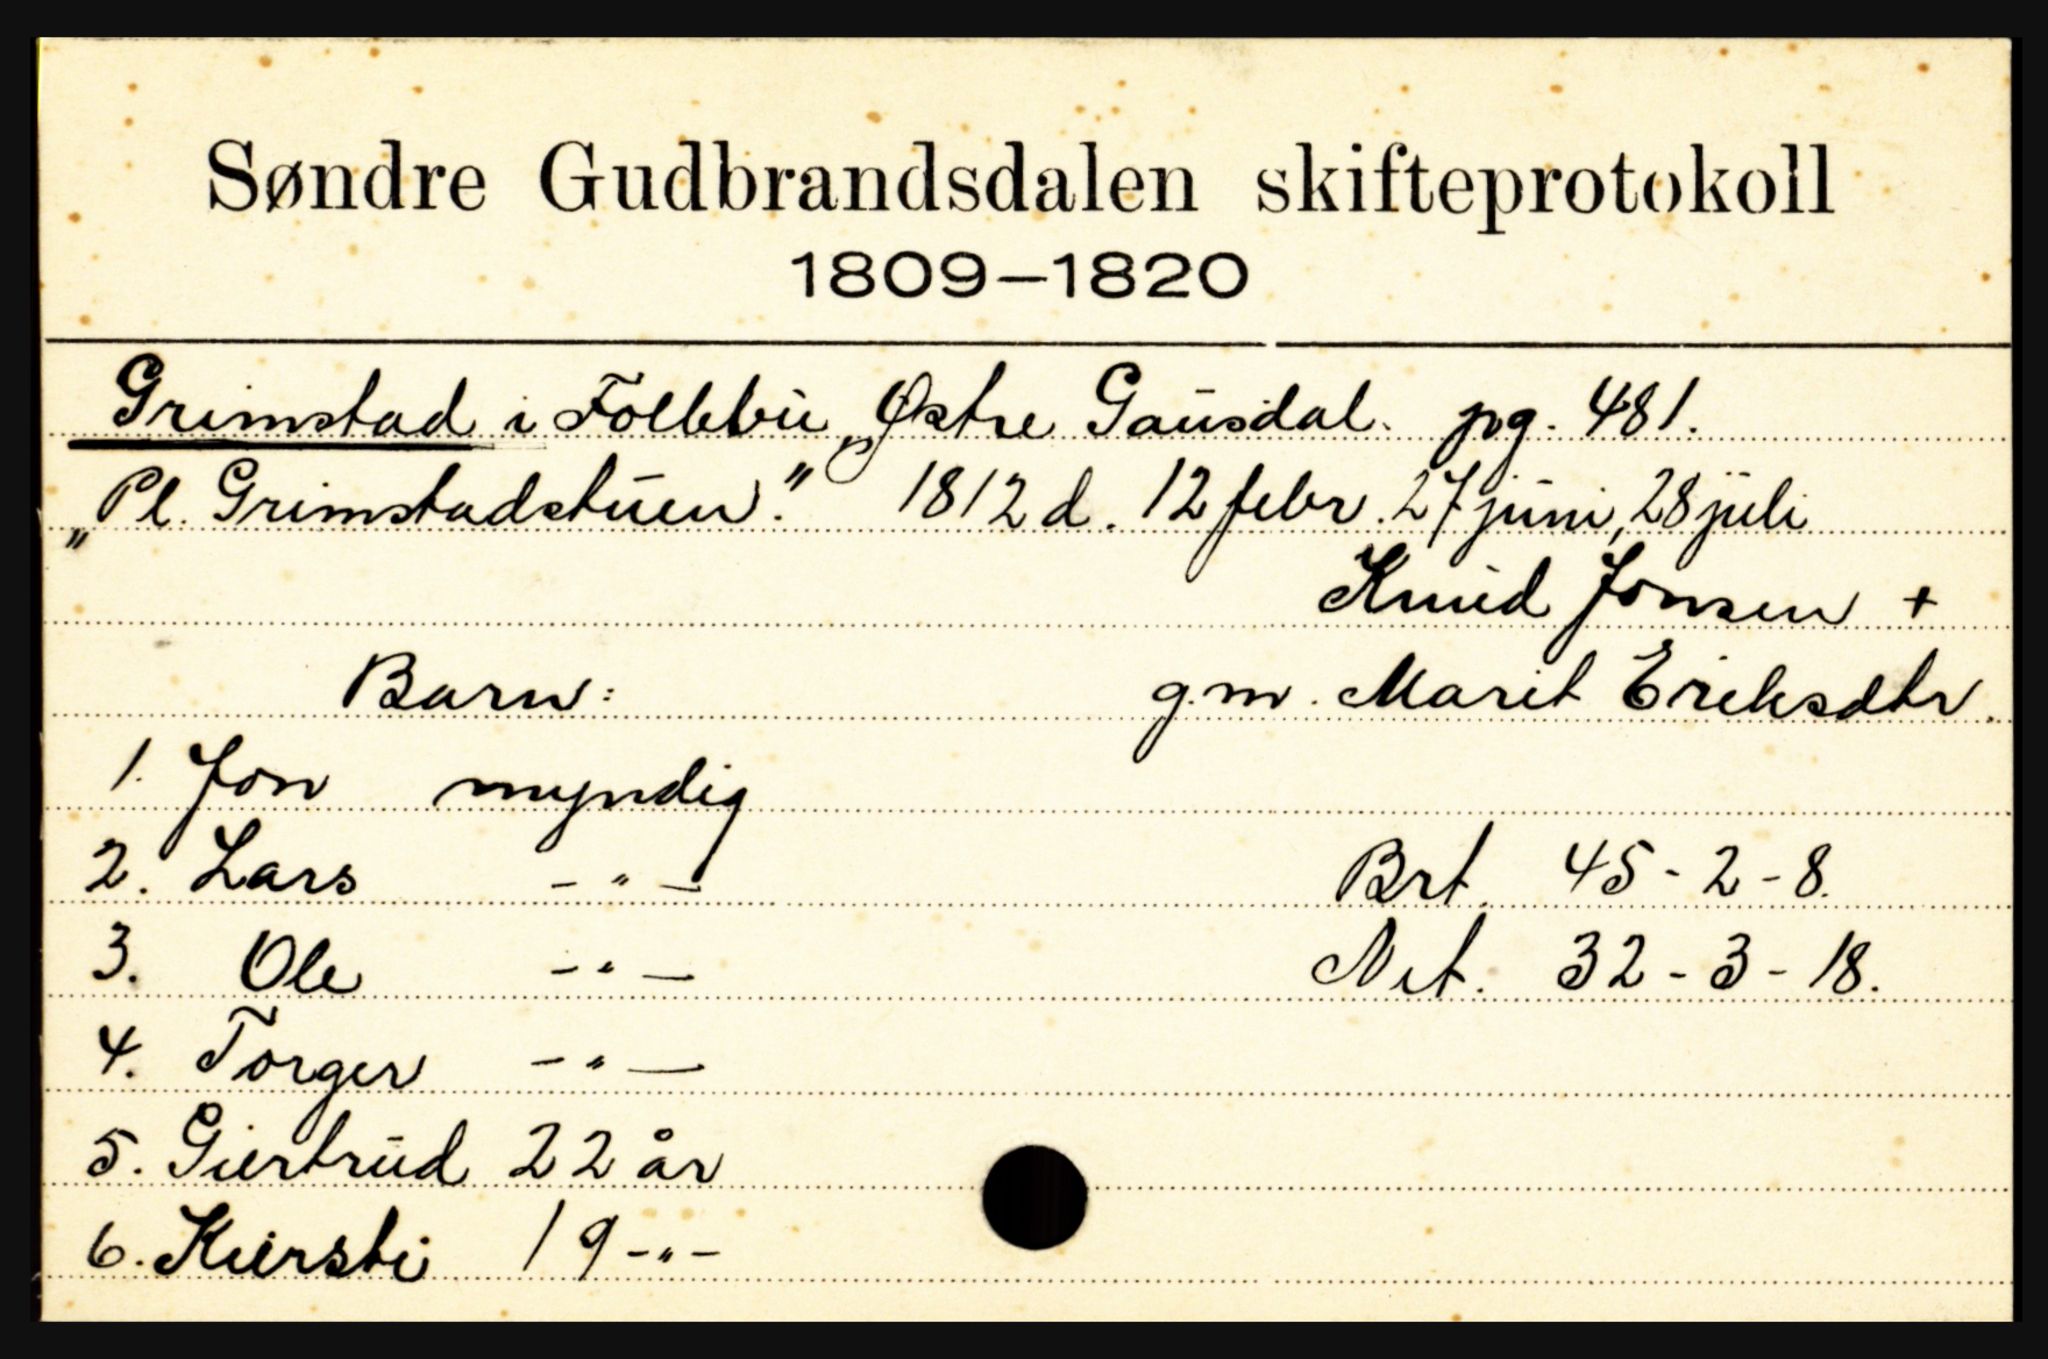 Søndre Gudbrandsdalen skifteprotokoll
1809-1820
Grimstad i Follebu, Østre Gausdal. pg. 481.
„Pl. Grimstadstuen." 1812 d. 12 febr. 27 juni, 28 juli
Knud Jonsen +
Barn: g.m. Marit Eriksdtr.
1. Jon myndig
2. Lars -"- Brt. 45-2-8.
3. Ole -"- Net. 32-3-18.
4. Torger -"-
5. Giertrud 22 år
6. Kiersti 19 -"-